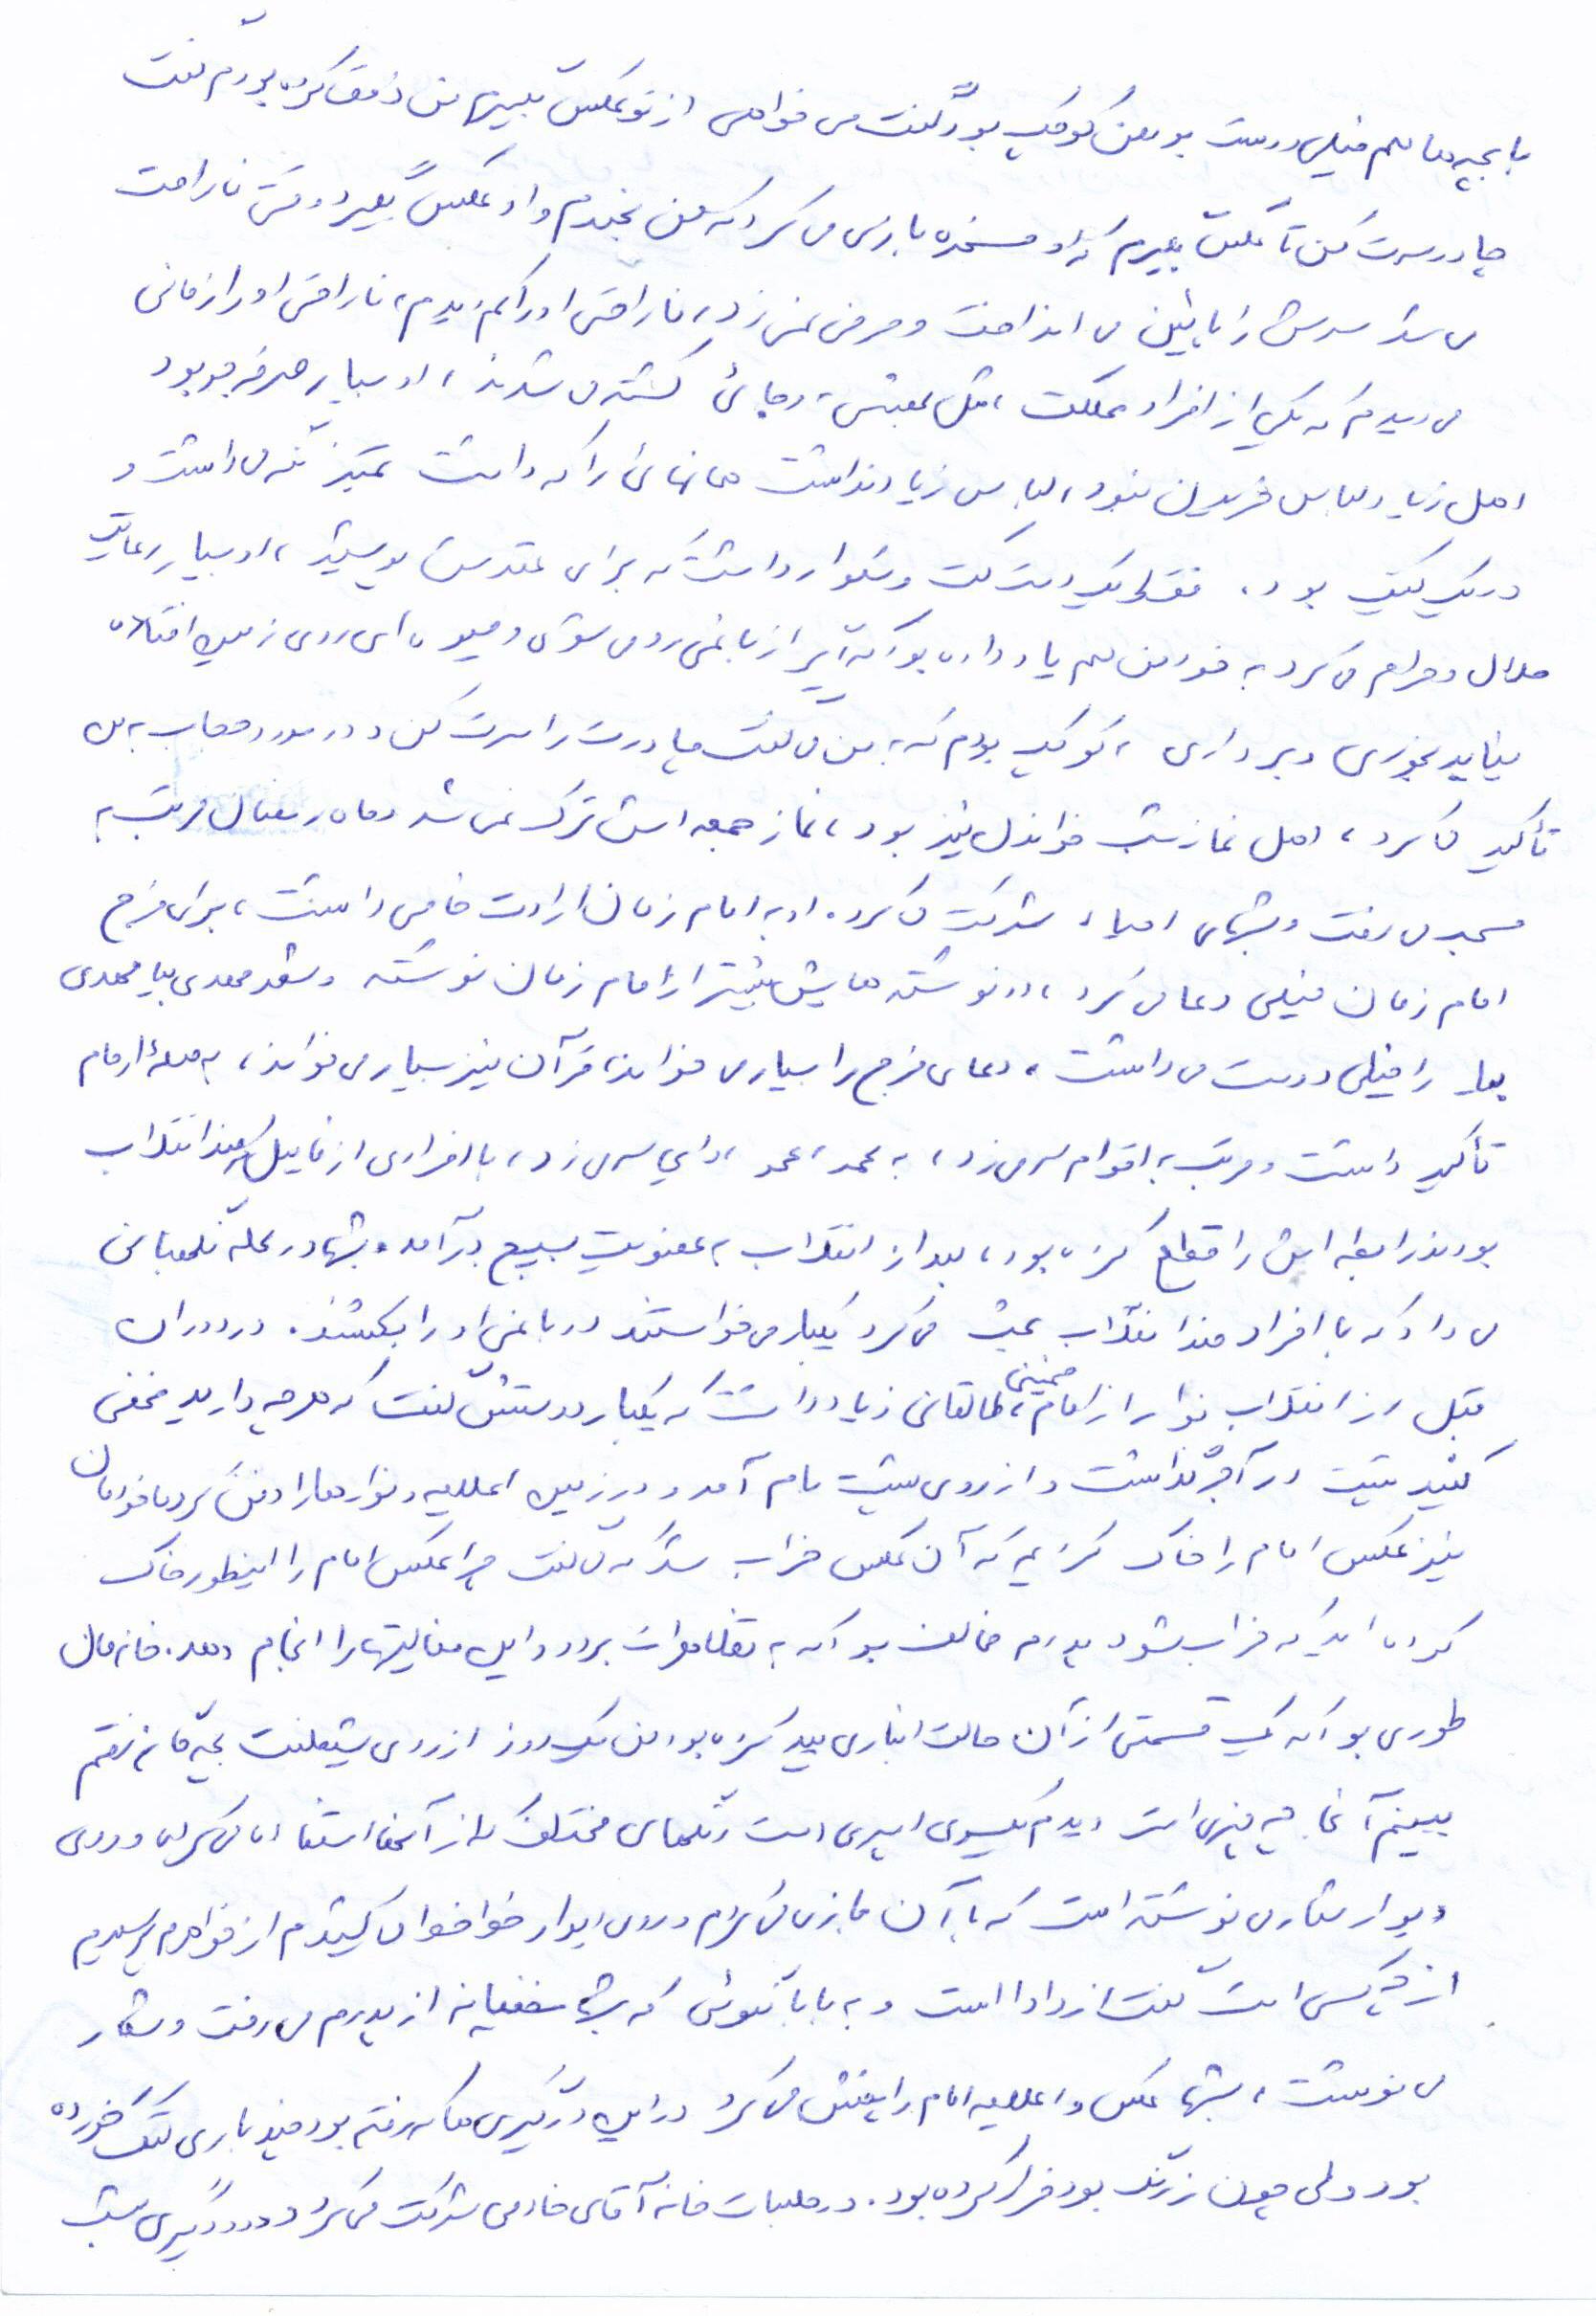 با بچه ها هم خیلی دوست بود من کوچک بودم گفت می خواهی از تو عکس بگیرم من ذوق کرده بودم گفت
چادر سرت کن تا عکس بگیرم که او مسخره بازی می کرد که من بخندم و او عکس بگیرد وقتی ناراحت
می شد سرش را پائین می انداخت و حرفی نمی زد، ناراحتی او را کم دیدم، ناراحتی او را زمانی
می دیدم که یکی از افراد مملکت، مثل بهشتی، رجائی کشته می شدند، او بسیار صرفه جو بود
اهل زیاد لباس خریدن نبود، لباس زیاد نداشت همانهائی را که داشت تمیز نگه می داشت و
دریک کیف بود. فقط یک دست کت و شلوار داشت که برای عقدش پوشید، او بسیار رعایت
حلال و حرام می کرد به خود من هم یاد داده بود که اگر از باغی رد می شوی و میوه ای روی زمین افتاده
نباید بخوری و برداری، کوچک بودم که به من می گفت چادرت را سرت کن و در مورد حجاب به من
تأکید می کرد، اهل نماز شب خواندن نیز بود، نماز جمعه اش ترک نمی شد و ماه رمضان مرتب به
مسجد می رفت و شبهای احیاء شرکت می کرد. او به امام زمان ارادت خاصی داشت، برای فرج
امام زمان خیلی دعا می کرد، در نوشته هایش بیشتر از امام زمان نوشته و شعر مهدی بیا مهدی
بیا را خیلی دوست می داشت، دعای فرج را بسیار می خواند، قرآن نیز بسیار می خواند، به صلهٔ ارحام
تأکید داشت و مرتب به اقوام سر می زد، به عمه، عمو، دایی سر می زد، با افرادی از فامیل که ضد انقلاب
بودند رابطه اش را قطع کرده بود، بعد از انقلاب به عضویت بسیج درآمد و شبها در محله نگهبانی
می داد که با افراد ضد انقلاب بحث می کرد یکبار می خواستند در باغی او را بکشند. در دوران
قبل از انقلاب نوار از امام خمینی، طالقانی زیاد داشت که یکبار دوستش گفت که هر چه دارید مخفی
کنید شیت در آجر نداشت و از روی پشت بام آمد و در زمین اعلامیه و نوارها را دفن کرد ما خودمان
نیز عکس امام را خاک کردیم که آن عکس خراب شد که می گفت چرا عکس امام را اینطور خاک
کرده اید که خراب شود پدرم مخالف بود که به تظاهرات برود و این فعالیتها را انجام دهد. خانه مان
طوری بود که یک قسمتی از آن حالت انباری پیدا کرده بود من یک روز از روی شیطنت بچه گانه رفتم
ببینم آنجا چه چیزی است دیدم یکسری اسپری است رنگهای مختلف که از آنها استفاده می کردن و روی
دیوار شعار می نوشته است که با آن بازی می کردم و روی دیوار خط خطی می کشیدم از خواهرم پرسیدم
از چه کسی است گفت از دادا است و به بابا نگوئی که شبها مخفیانه از پدرم می رفت و شعار
می نوشت، شبها عکس و اعلامیه امام را پخش می کرد در این درگیری ها که رفته بود چند باری کتک خورده
بود ولی چون زرنگ بود فرار کرده بود. در جلسات خانه آقای خادمی شرکت می کرد و در درگیری شب